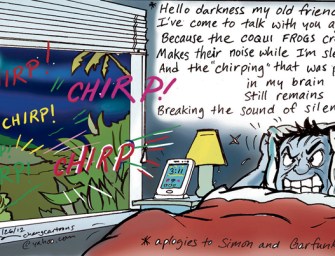 * Hello darkness my old friend
I've come to talk with you a
Because the COQUI FROGS cr
Makes their noise while I'm sle
And the "chirping" that was p
in my brain
Still remains
Breaking the sound of silen
CHIRP!
CHIRP!
CHIRP
3:11
changcartoons
@yahoo.com
* aplogies to Simon and Garfunk